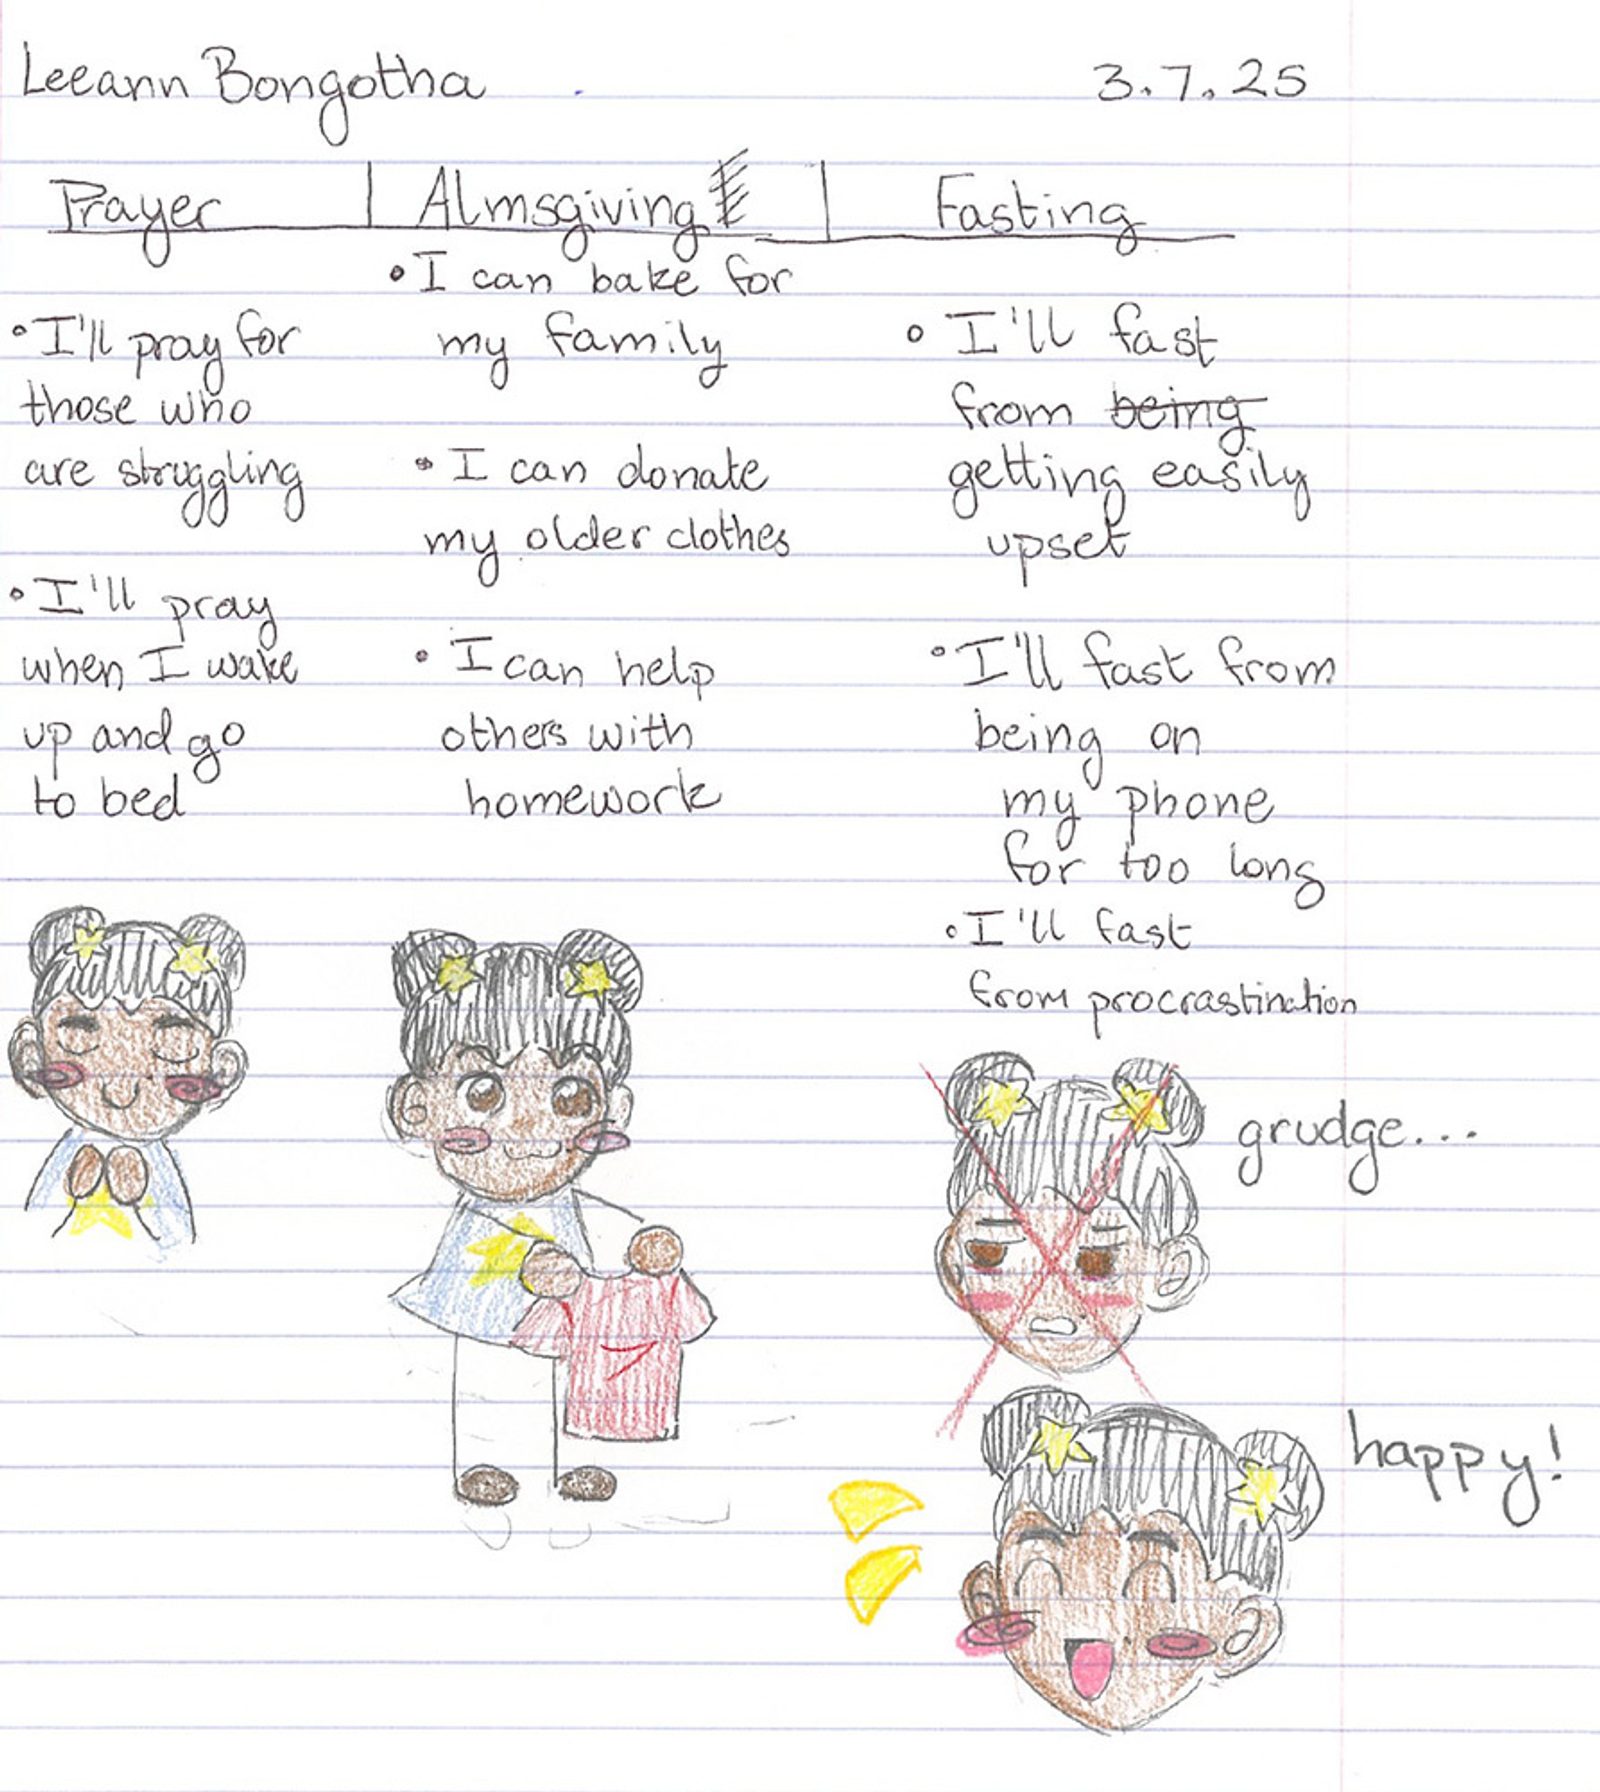 Leeann Bongotha 3.7.25
Prayer Almsgiving Fasting
• I'll pray for
those who
are struggling
• I'll pray
when I wake
up and go
to bed
• I can bake for
my family
• I can donate
my older clothes
• I can help
others with
homework
• I'll fast
from being
getting easily
upset
• I'll fast from
being on
my phone
for too long
• I'll fast
from procrastination
grudge...
happy!